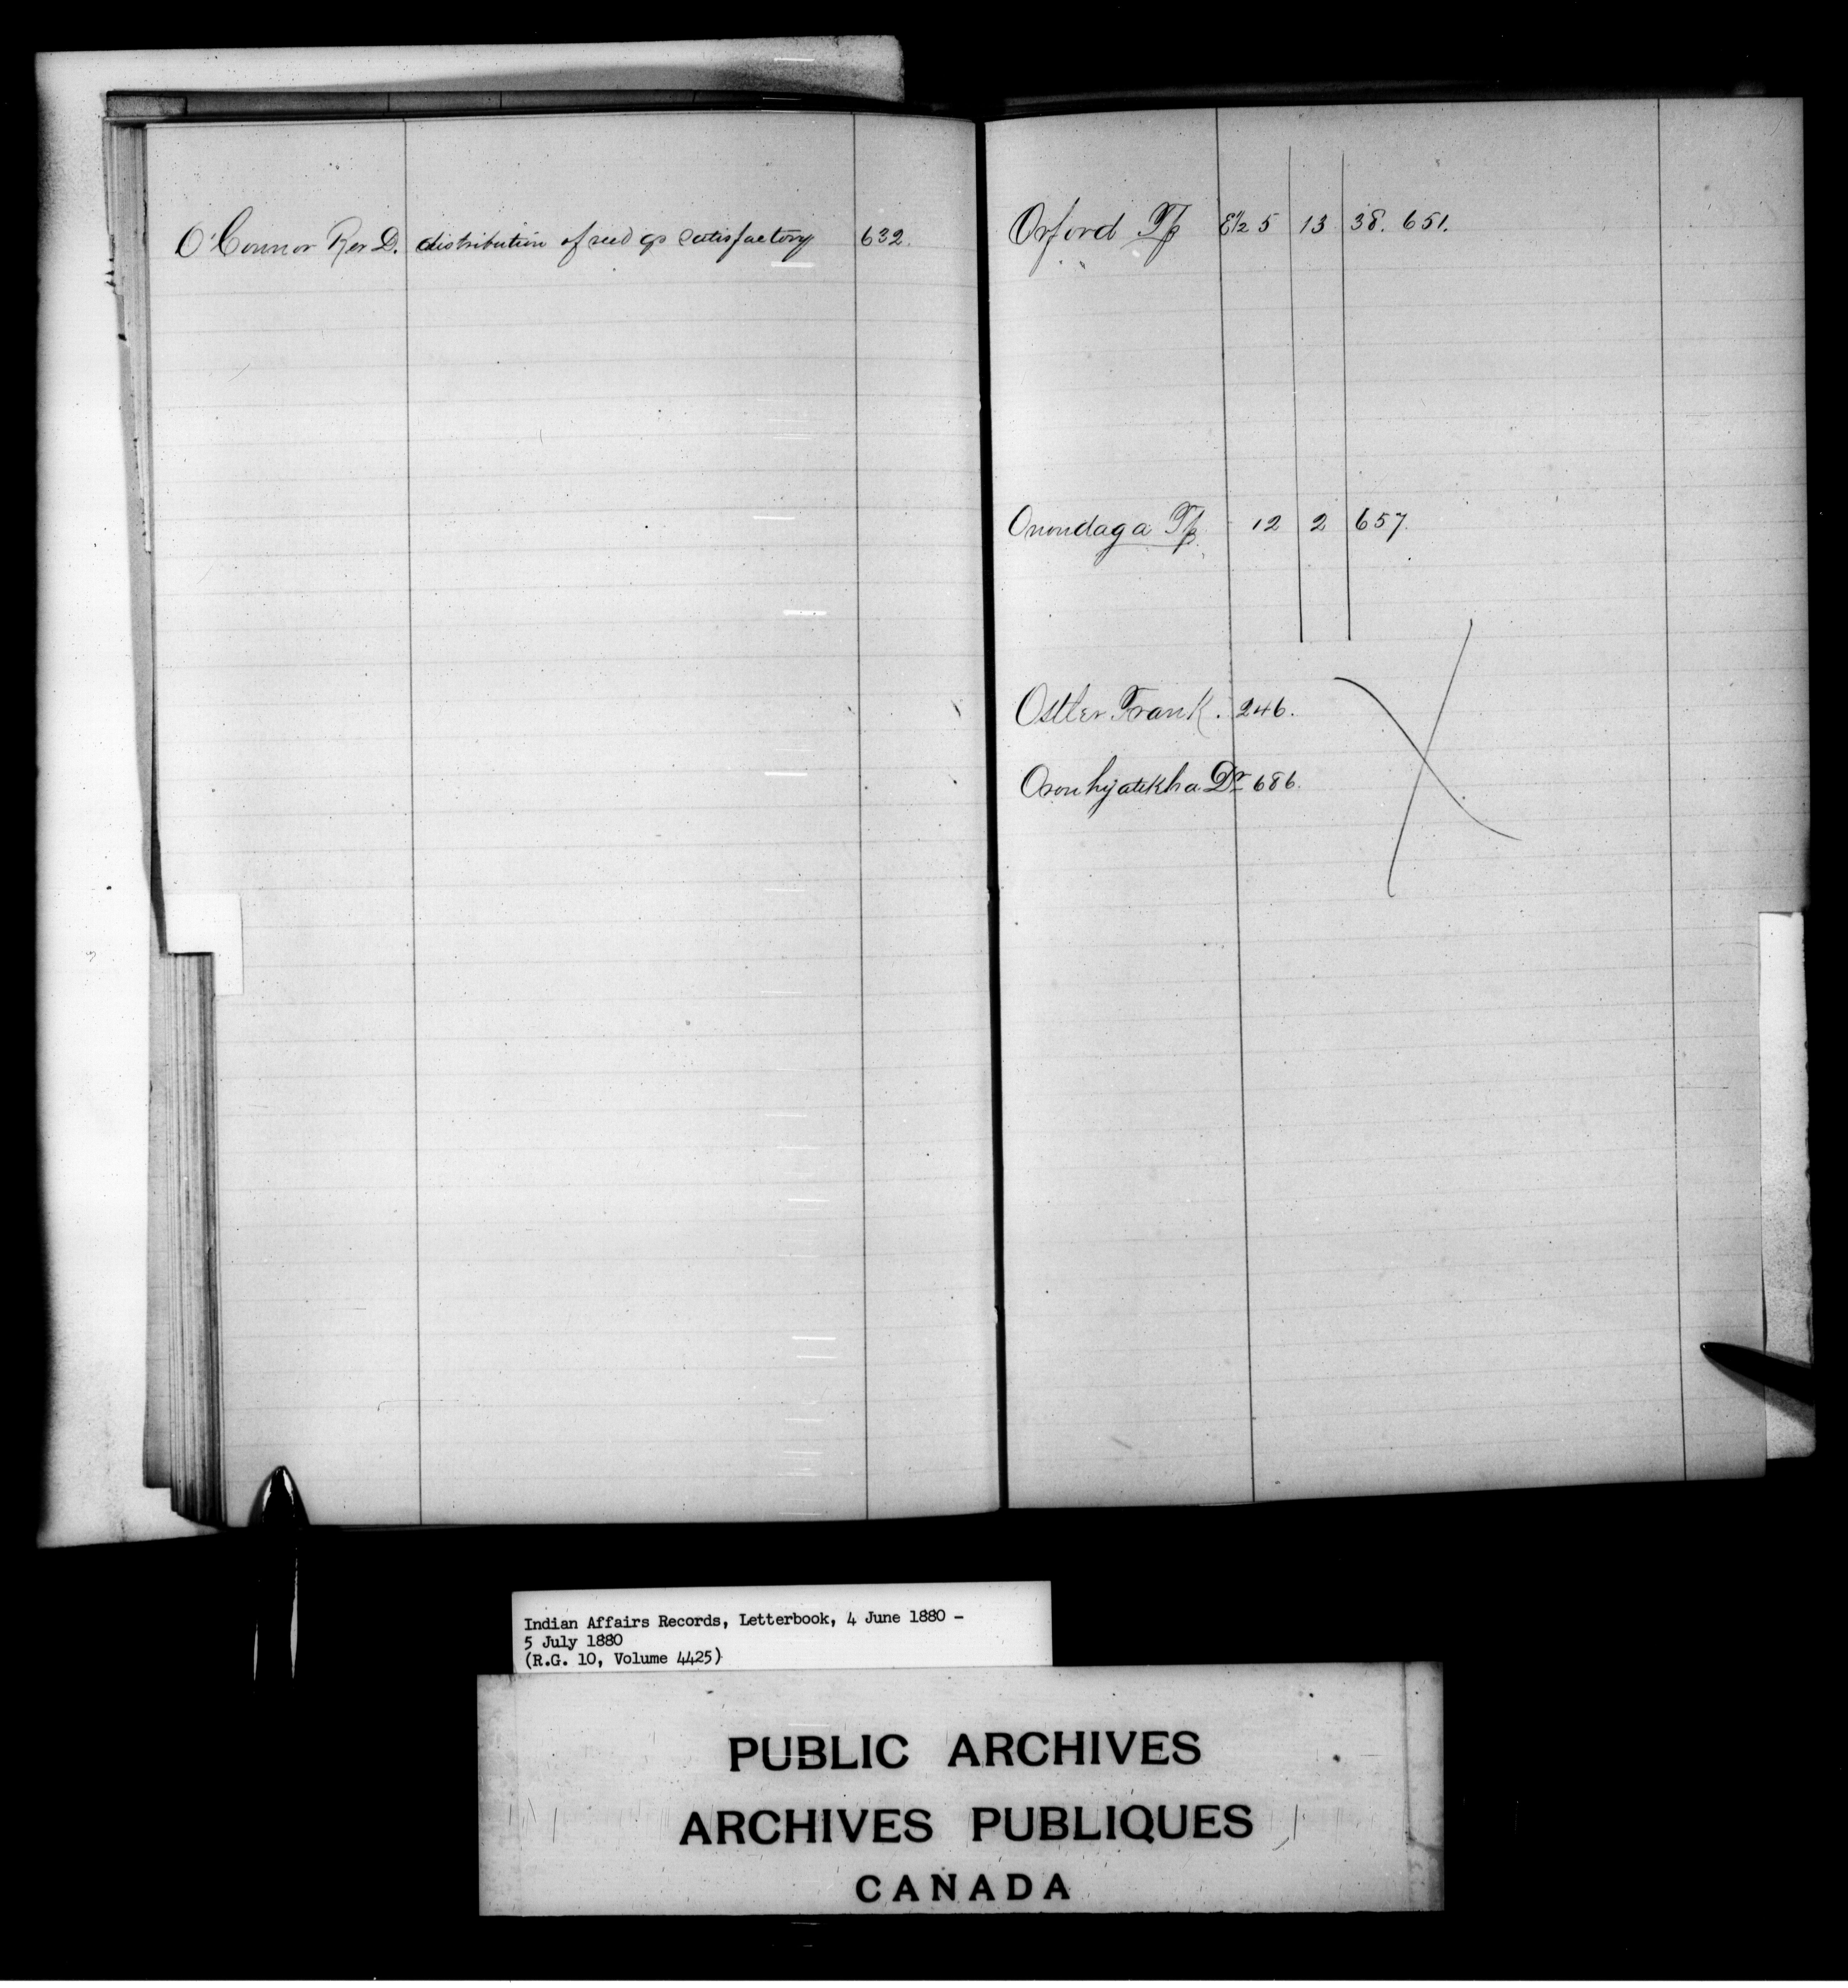 O'Connor Rev D. distribution of seed gs satisfactory 632.
Orford Tp E½ 5 13 38. 651.
" "
Onondaga Tp. 12 2 657.
Ostler Frank. 246.
Oronhyatekha Dr 686.
Indian Affairs Records, Letterbook, 4 June 1880 –
5 July 1880
(R.G. 10, Volume 4425)
PUBLIC ARCHIVES
ARCHIVES PUBLIQUES
CANADA